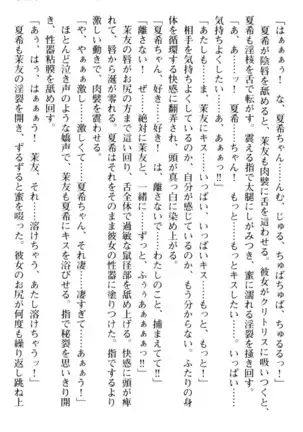 「はぁぁぁぅ！　な、夏希ちゃん……んむ、じゅる、ちゅぱちゅぱ、ちゅるるっ！」
夏希が陰唇を舐めると、茉友も肉襞に舌を這わせる。彼女がクリトリスに吸いつくと、
夏希も淫核を舌で転がす。震える指で太腿にしがみつき、蜜に濡れる淫裂を掻き回す。
「あ、あ……あぅっ！　夏希……ちゃん！　もっと……もっとキスしたい……。いっぱい……
気持ちよくしたい……っ！」
「あたしも……ぁぁ、茉友にキス……いっぱい、いっぱい……ぁぁ、もっと、もっと！」
相手を気持ちよくしているのか、自分が感じているのか、もう分からない。ふたりの身
体を循環する快感に翻弄され、頭が真っ白に染め上がる。
「夏希ちゃん、好き……好き！　は、離さないで……わたしのこと、捕まえてて！」
「離さない！　ぜ……絶対に茉友と、一緒に……ずっと、ふぅぁぁぁぁっ!!」
茉友の唇がお尻のほうまで這い回り、舌全体で過敏な鼠径部を舐め上げる。快感に頭が痺
れて、唇から涎が零れる。夏希はそれをそのまま彼女の性器に塗りつけた。指でするより
激しい動きで、肉襞を震わせる。
「や、やぁぁぁっ！　激し……激しくて……夏希ちゃん、それ……凄、凄すぎて……ぁぁぁぅ！」
ほとんど泣き声のような嬌声で、茉友も夏希にキスを浴びせる。指で秘裂を思いきり開
き、性器粘膜を舐め回す。
「あぅ、はぅ、はぁぁぁぅ！　茉友、それ……溶けちゃう！　あたし溶けちゃうぅ！」
夏希も茉友の淫裂を開き、ずるずると蜜を啜った。彼女のお尻が何度も繰り返し跳ね上